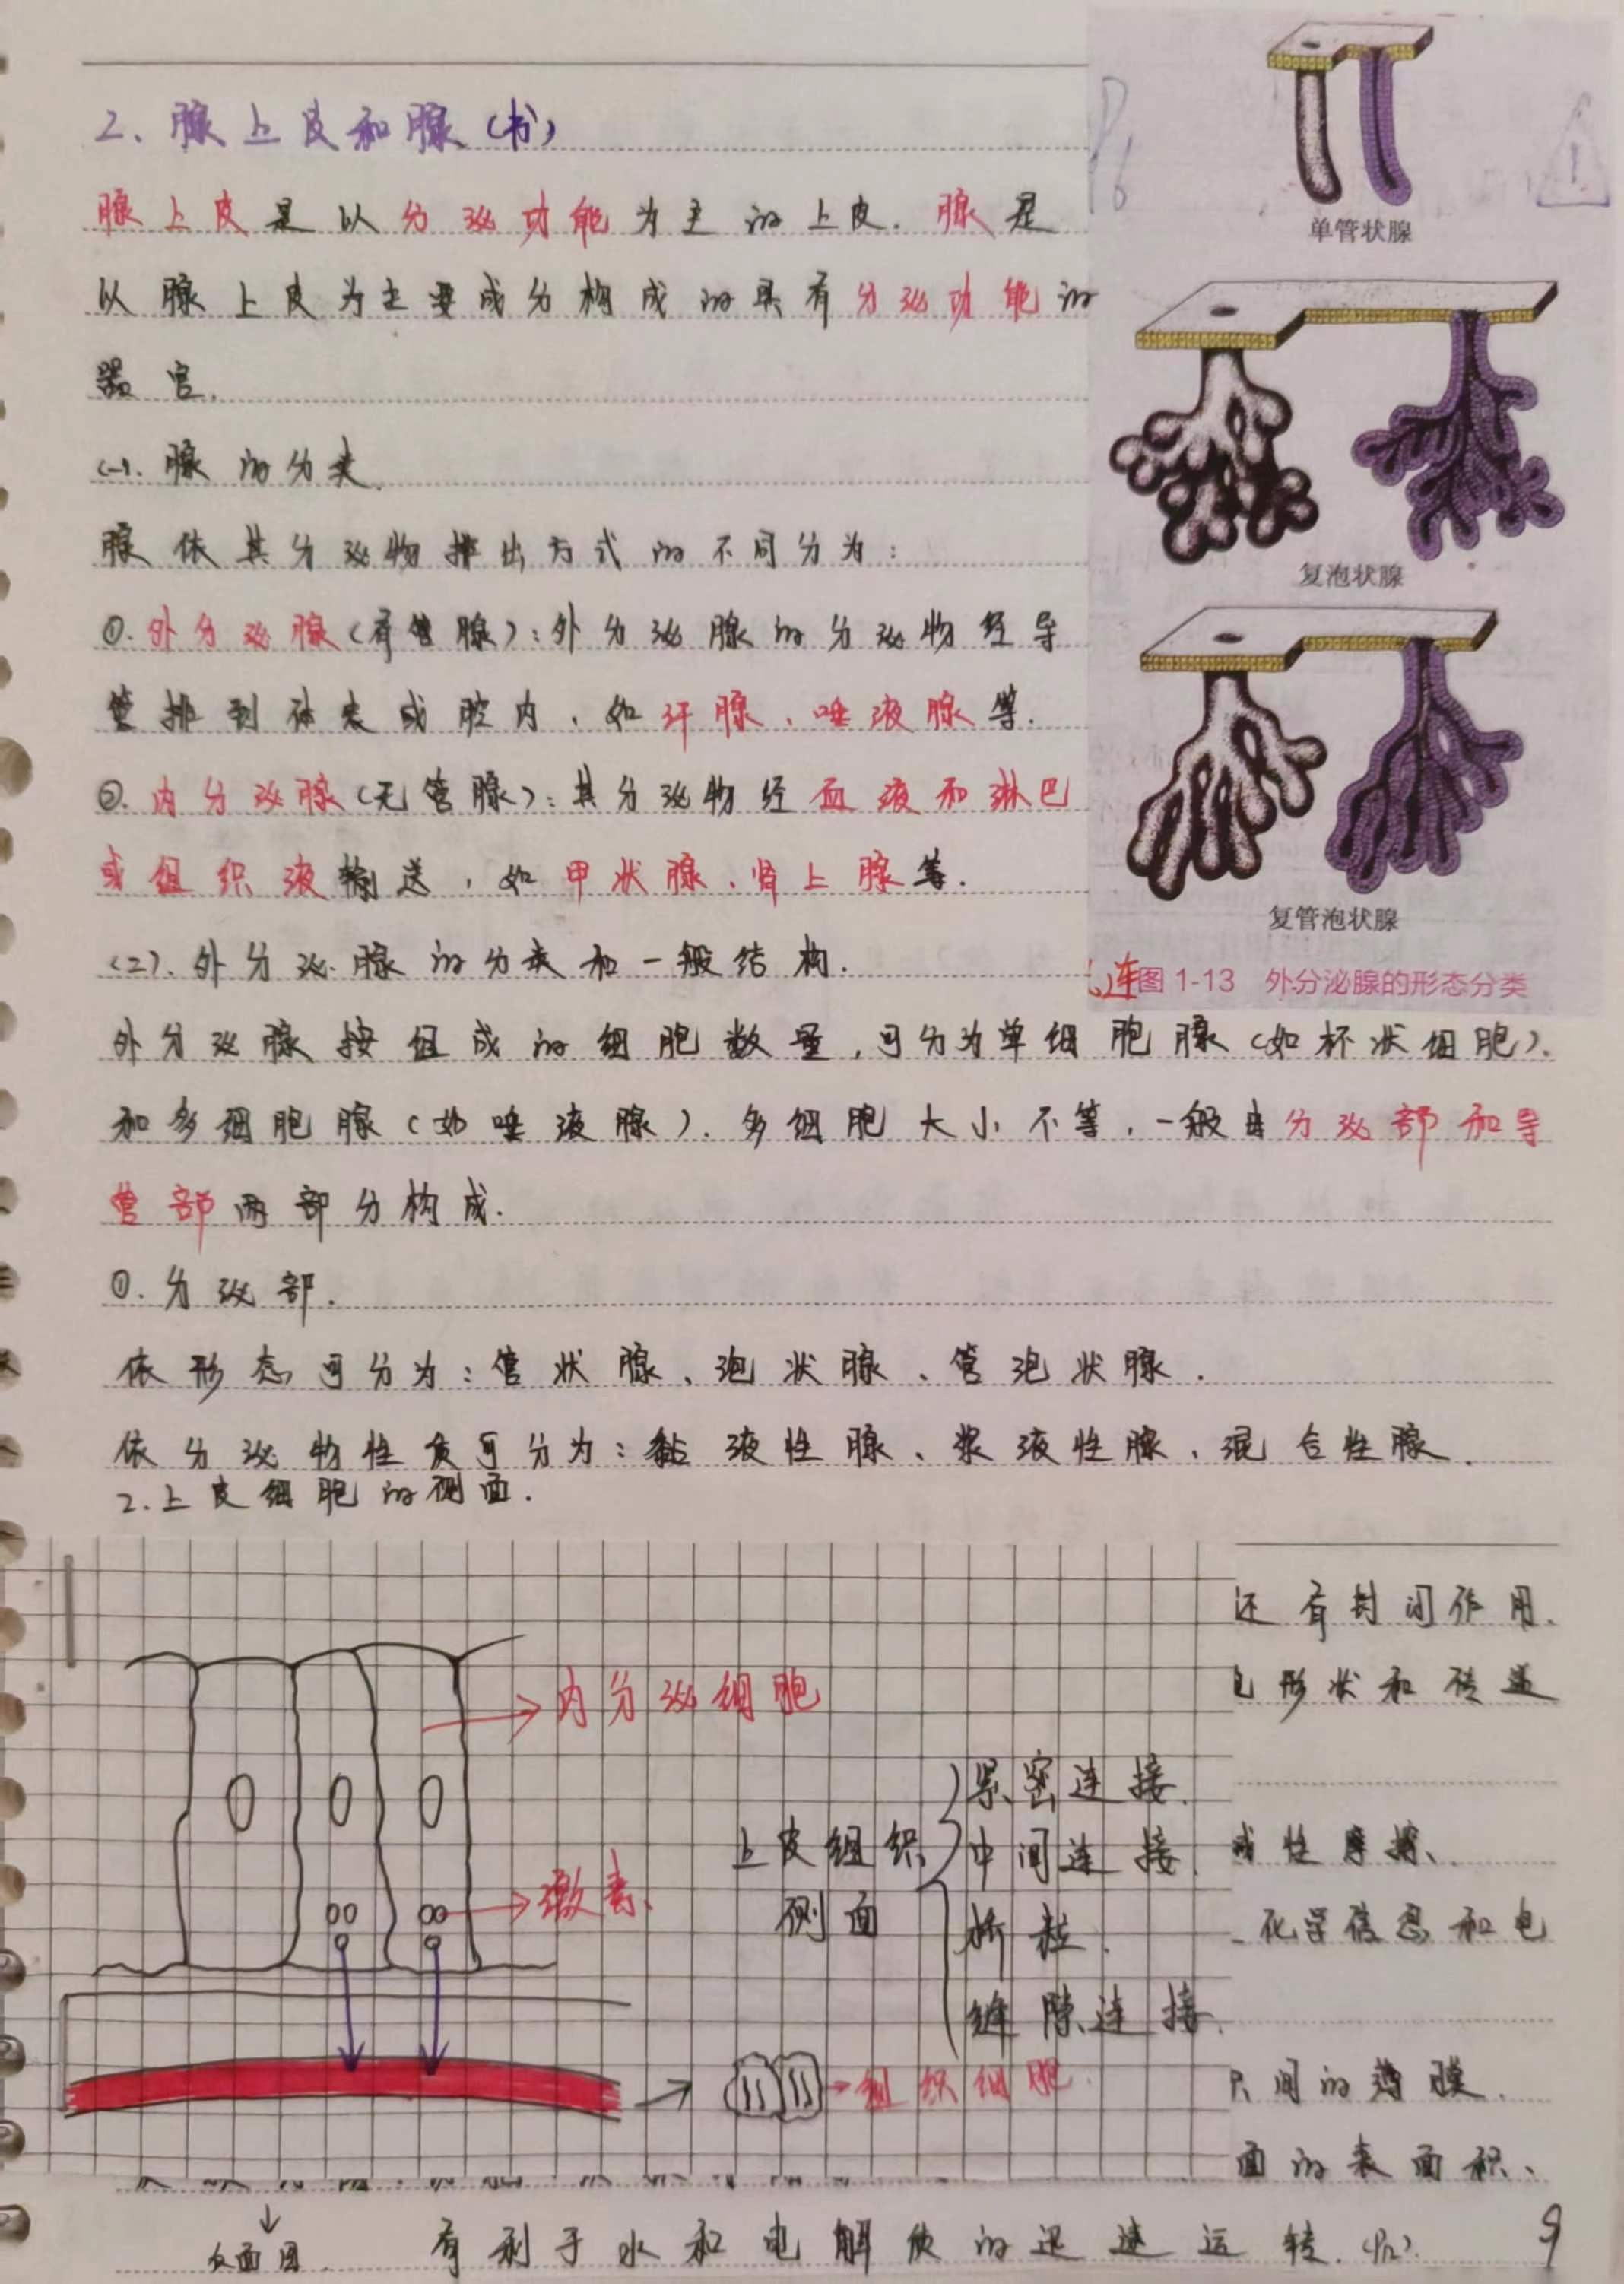 2、腺上皮和腺（书）
P6
腺上皮是以分泌功能为主的上皮．腺是
以腺上皮为主要成分构成的具有分泌功能的
器官．
单管状腺
(一)．腺的分类．
腺依其分泌物排出方式的不同分为：
复泡状腺
①．外分泌腺（有管腺）：外分泌腺的分泌物经导
管排到体表或腔内，如汗腺、唾液腺等．
②．内分泌腺（无管腺）：其分泌物经血液和淋巴
或组织液输送，如甲状腺、肾上腺等．
复管泡状腺
(二)．外分泌腺的分类和一般结构．
连图 1-13 外分泌腺的形态分类
外分泌腺按组成的细胞数量，可分为单细胞腺（如杯状细胞）．
和多细胞腺（如唾液腺）．多细胞大小不等，一般由分泌部和导
管部两部分构成．
①．分泌部．
依形态可分为：管状腺、泡状腺、管泡状腺．
依分泌物性质可分为：黏液性腺、浆液性腺、混合性腺．
2．上皮细胞的侧面．
还有封闭作用．
形状和传递
内分泌细胞
紧密连接．
上皮组织
侧面
中间连接．
激素、
桥粒．
缝隙连接．
组织细胞．
化学信息和电
间的薄膜．
面的表面积、
↓
反面图．
有利于水和电解质的迅速运转．
9